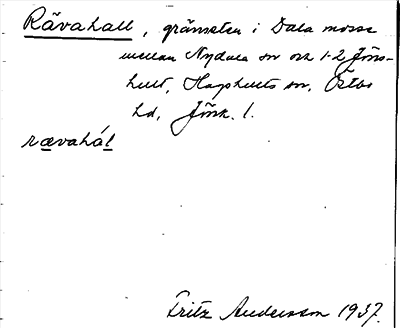 Rävahall, gränssten i Dala mosse
mellan Nydala sn och 1-2 Jöns-
hult, Hagshults sn, Östbo
hd, Jönk. l.
rævahál
Fritz Andersson 1937.